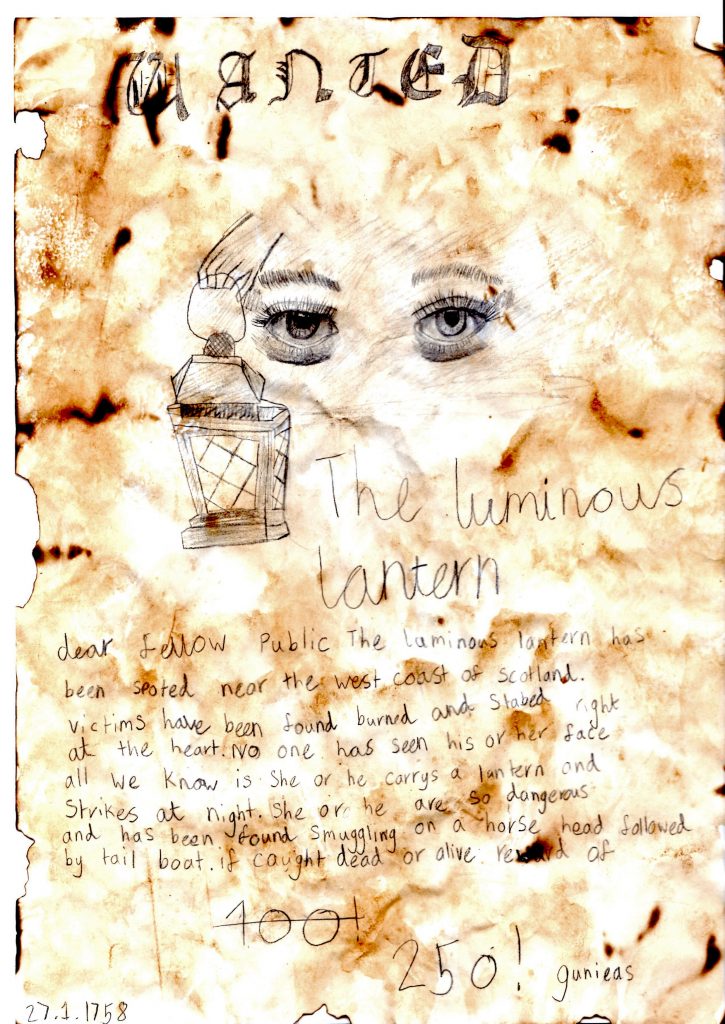 WANTED
The luminous
lantern
dear fellow Public The luminous lantern has
been spoted near the west coast of scotland.
victims have been found burned and stabed right
at the heart. No one has seen his or her face
all we know is she or he carrys a lantern and
Strikes at night. She or he are so dangerous
and has been found smuggling on a horse head followed
by tail boat. if caught dead or alive reward of
100!
250! gunieas
27.1.1758